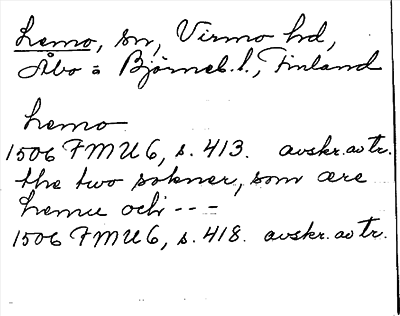 Lemo, sn, Virmo hd,
Åbo o Björneb. l., Finland
Lemo
1506 FMU 6, s. 413. avskr. av tr.
the two sokner, som ære
Lemu och - - =
1506 FMU 6, s. 418. avskr. av tr.